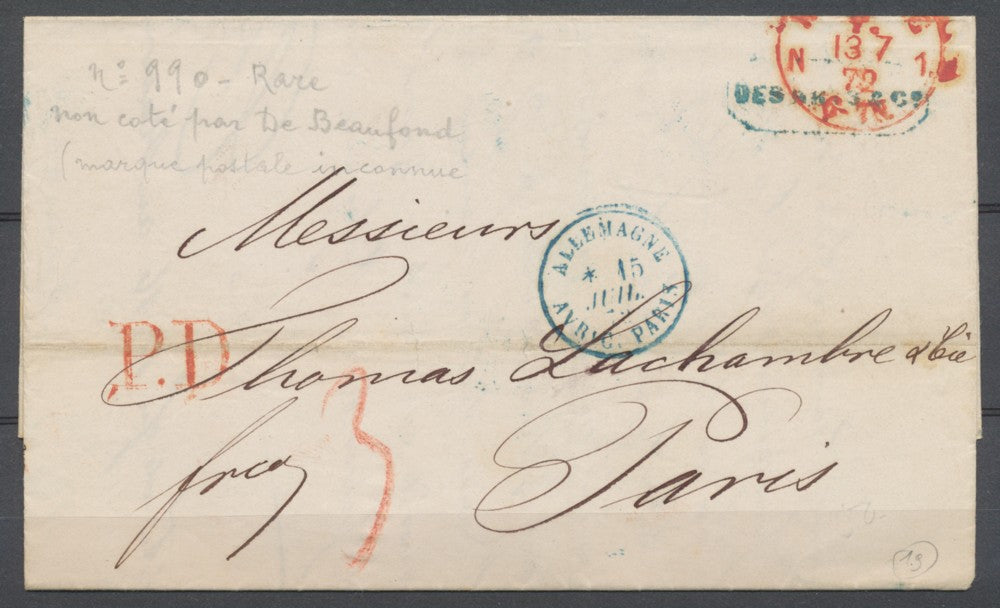 N 13 7 1
72
nº 990 - Rare
non coté par De Beaufond
(marque postale inconnue
Messieurs
ALLEMAGNE
* 15
JUIL.
AVRIC. PARIS
P.D
Thomas Lachambre & Cie
frco 3
Paris
19